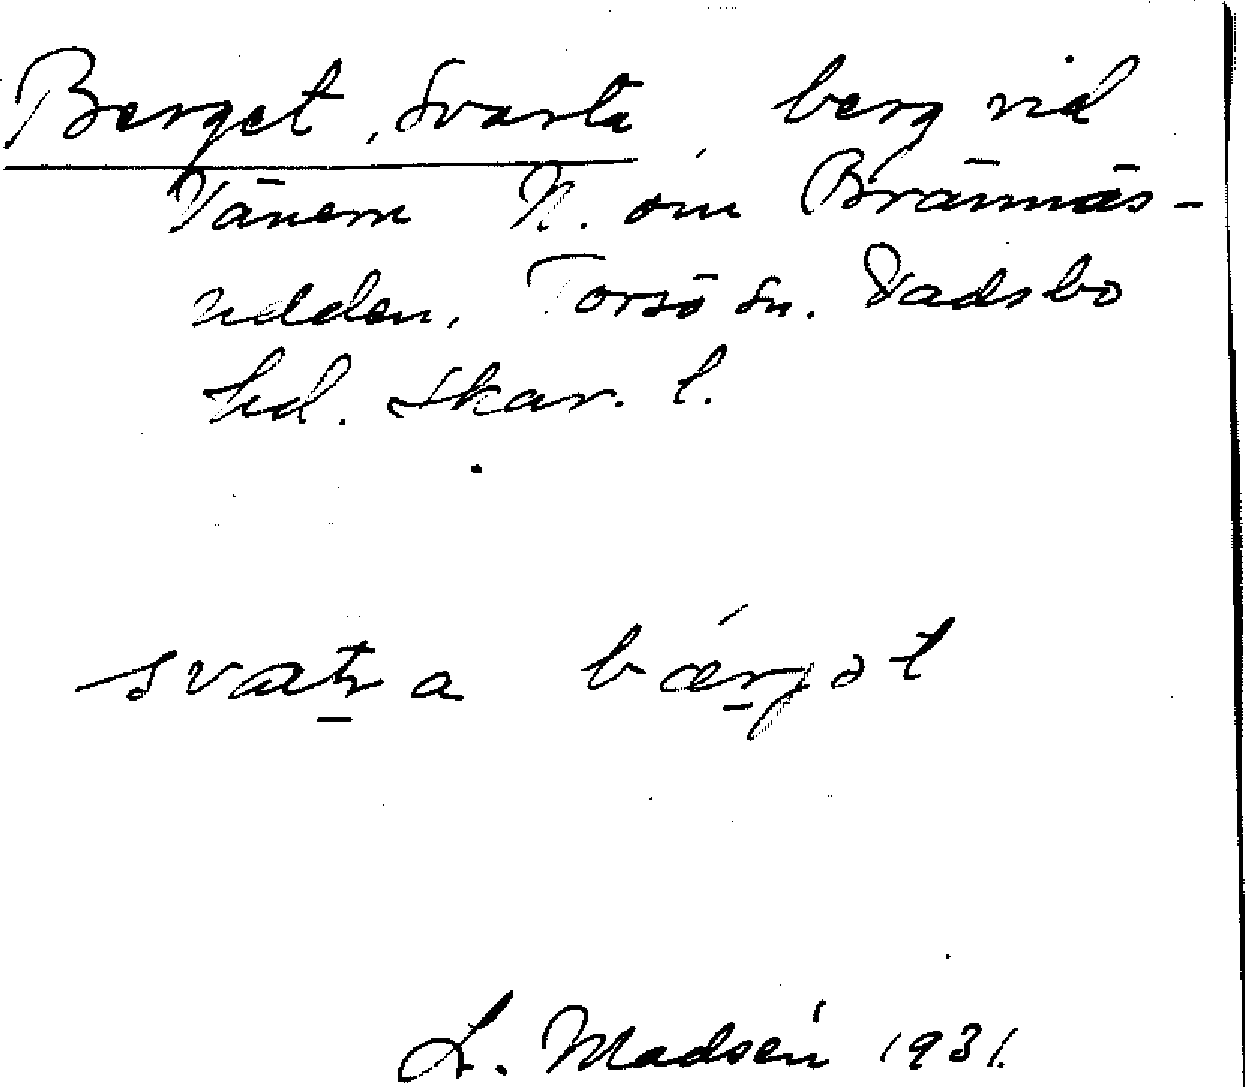 Berget, Svarta berg vid
Vänern N. om Brännäs-
udden, Torsö sn. Vadsbo
hd. Skar. l.
svaʈa bærgət
L. Madsén 1931.